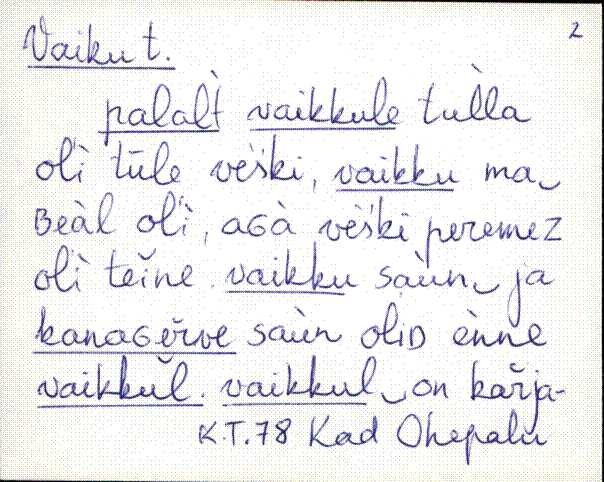 2
Vaiku t.
palalt̀ vaikkule tul̀la
olì tūle vèški, vaikku ma‿
ʙeàl olì, aɢà vèški peremez
olì teine. vaikku saùn‿ ja
kanaɢèrve saùn oliᴅ ènne
vaikkul. vaikkul‿on kařja-
K.T.78 Kad Ohepalu